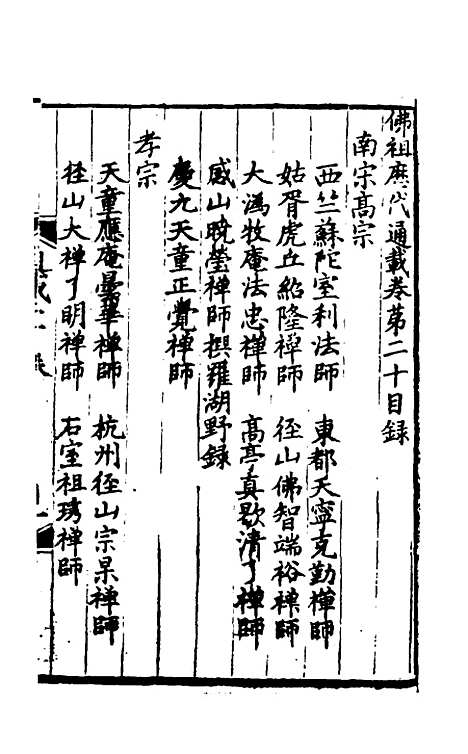 佛祖歷代通載卷第二十目録
南宋高宗
西竺蘇陀室利法師　東都天寧克勤禪師
姑胥虎丘紹隆禪師　徑山佛智端裕禪師
大溈牧庵法忠禪師　高亭真歇清了禪師
感山曉瑩禪師撰羅湖野録
慶九天童正覺禪師
孝宗
天童應庵曇華禪師　杭州徑山宗杲禪師
徑山大禪了明禪師　石室祖琇禪師